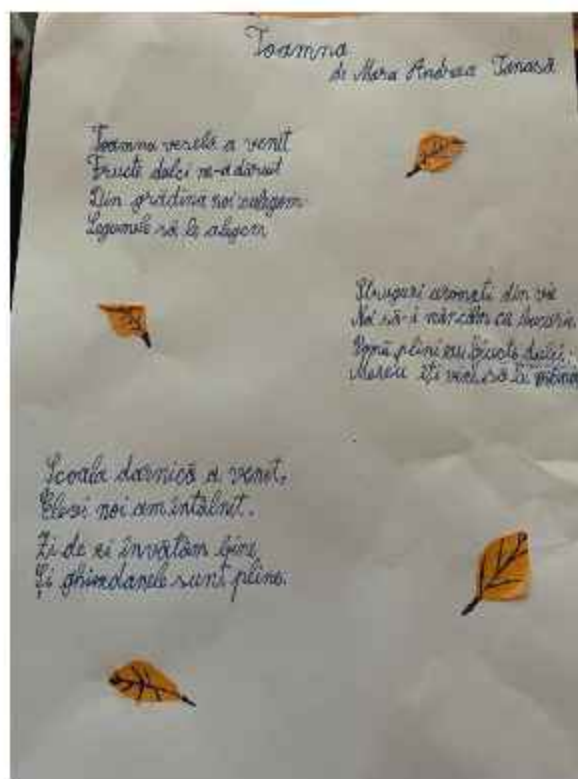 Toamna
de Mara Andreea Tanasă
Toamna veselă a venit
Fructe dulci ne-a dăruit
Din grădină noi culegem
Legumele să le alegem
Struguri aromați din vie
Noi să-i mâncăm cu bucurie
Pomii plini cu fructe dulci,
Mereu îți vine să le
Școala darnică a venit,
Elevi noi am întâlnit.
Zi de zi învățăm bine
Și ghiozdanele sunt pline.